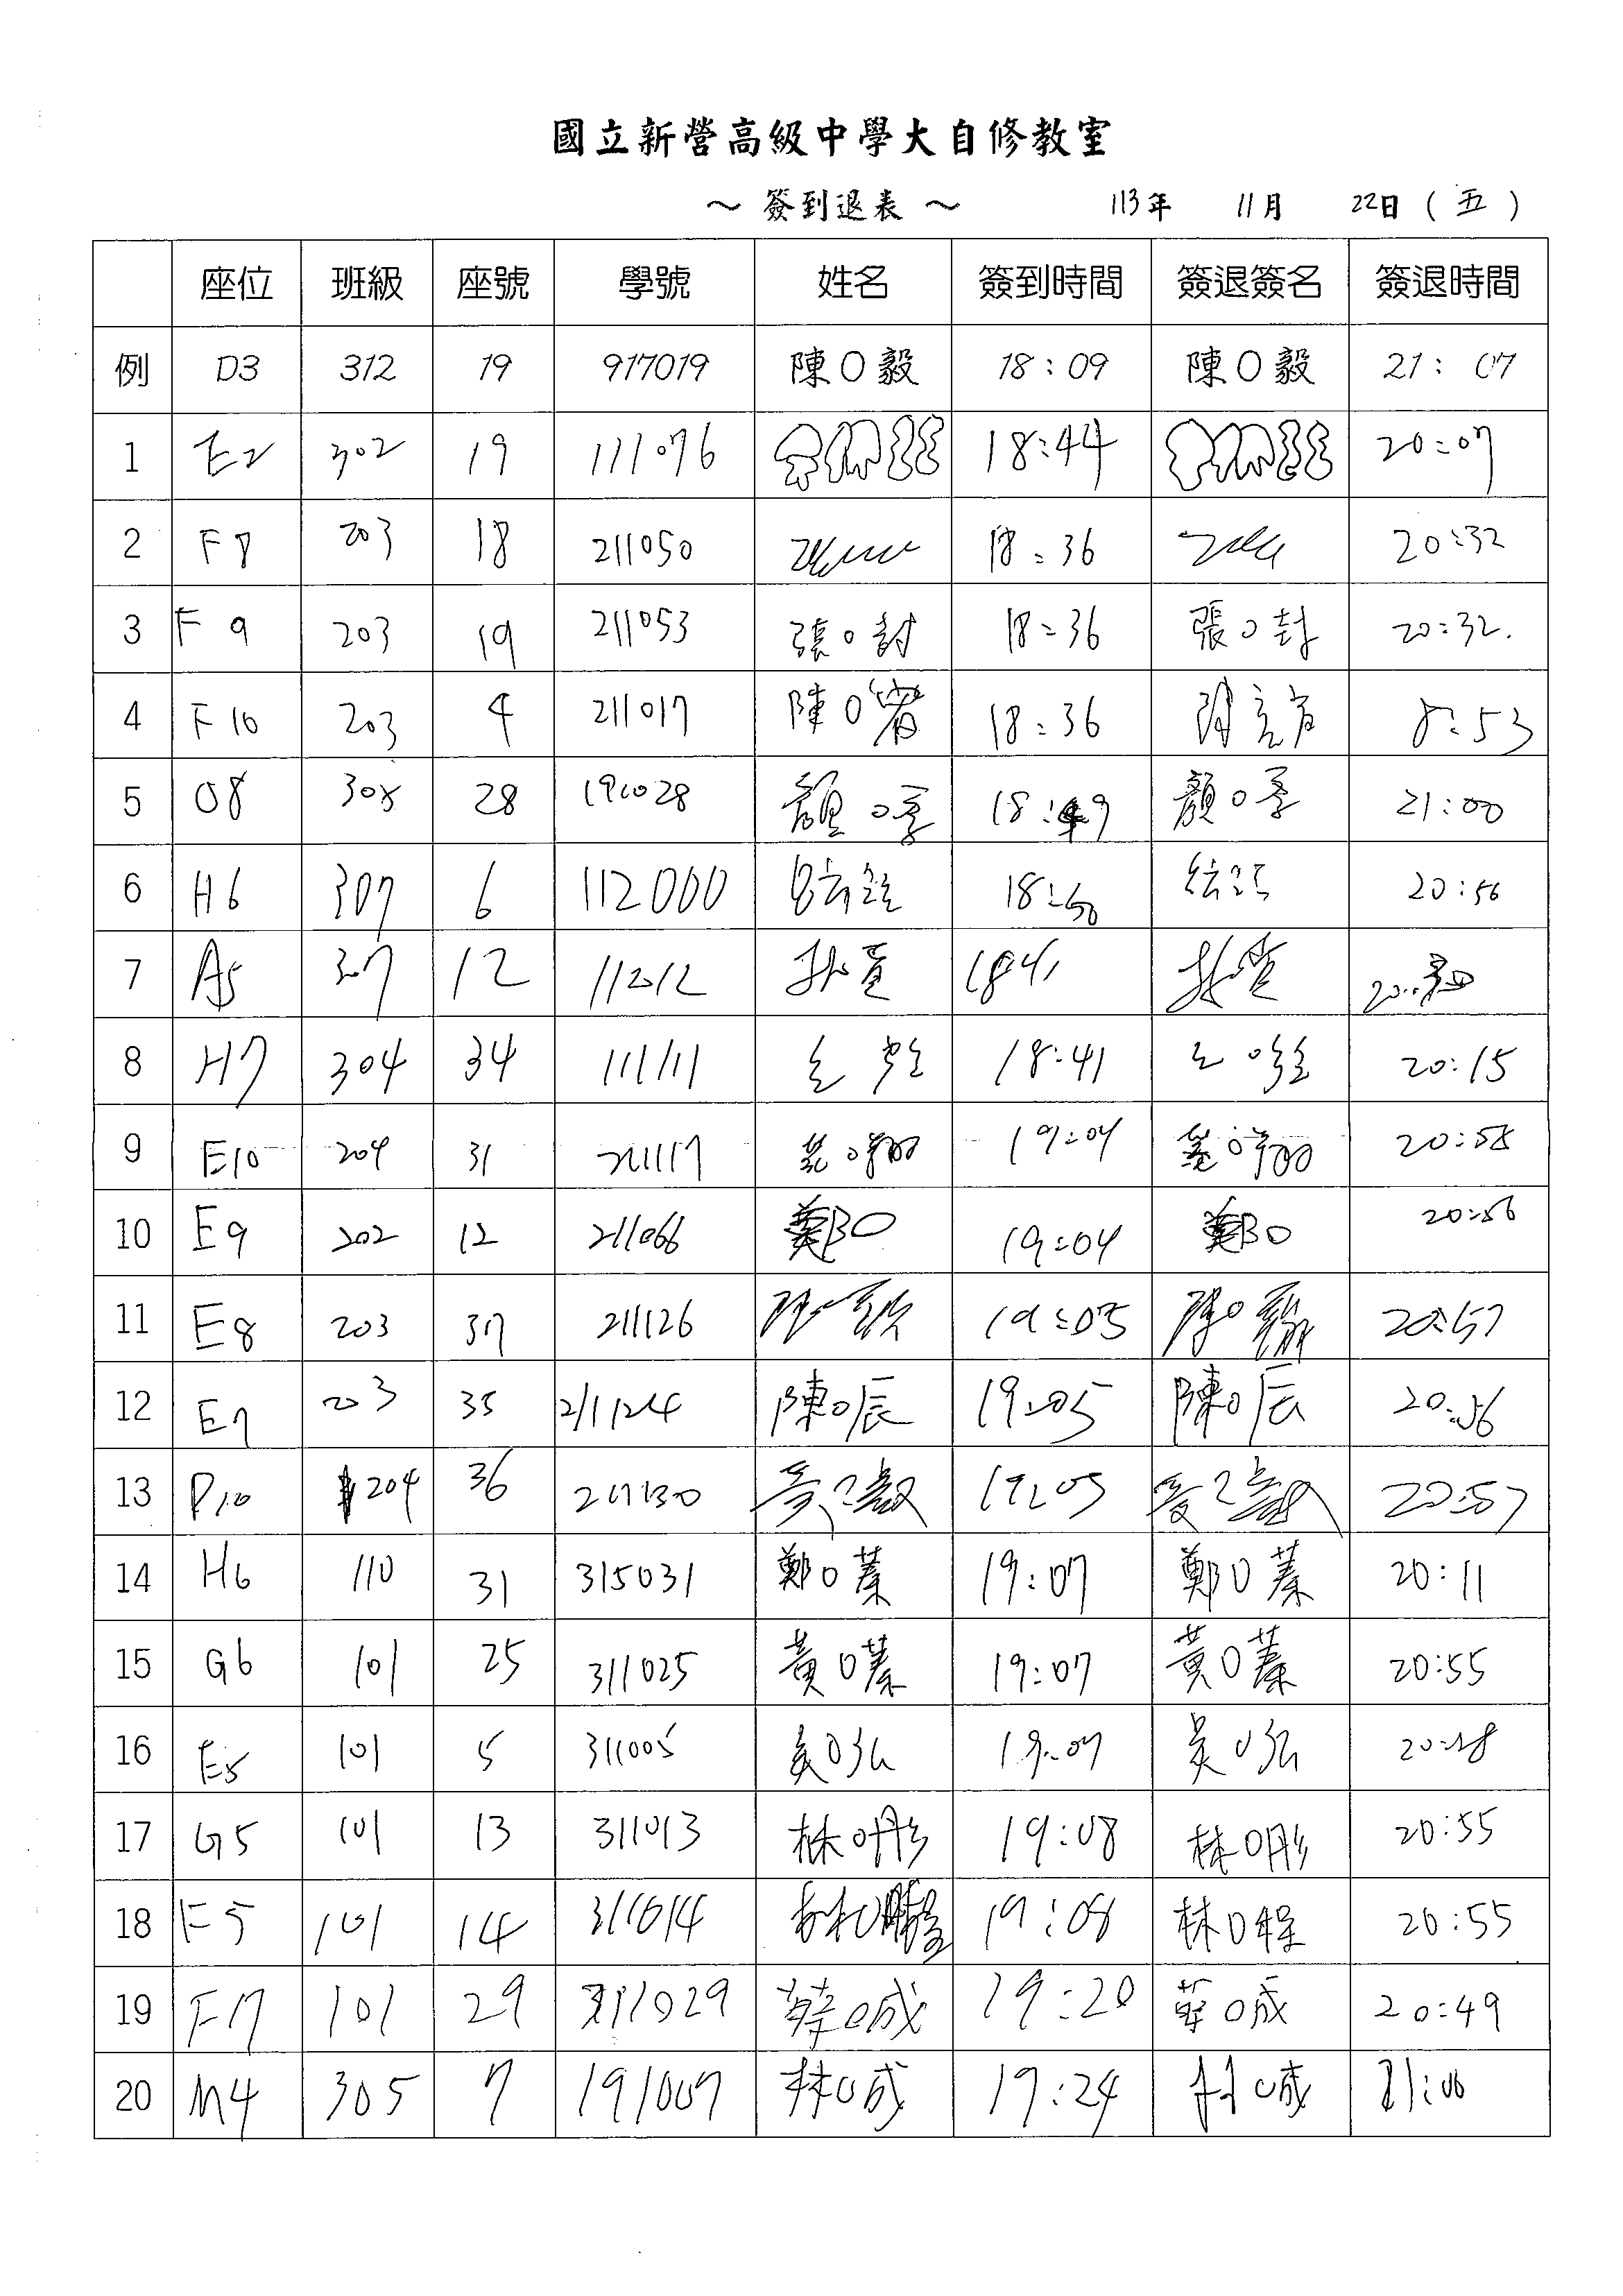 國立新營高級中學大自修教室
～ 簽到退表 ～ 113年 11月 22日 ( 五 )
座位 班級 座號 學號 姓名 簽到時間 簽退簽名 簽退時間
例 D3 312 19 917019 陳O毅 18:09 陳O毅 21:07
1 E2 302 19 111076 18:44 20:07
2 F8 203 18 211050 18:36 20:32
3 F9 203 19 211053 張O封 18:36 張O封 20:32.
4 F10 203 4 211017 陳O 18:36 8:53
5 O8 308 28 191028 顏O季 18:49 顏O季 21:00
6 H6 307 6 112000 18:50 20:56
7 A5 307 12 112012 1841
8 H7 304 34 111111 18:41 20:15
9 E10 204 31 211117 19:04 20:58
10 E9 202 12 211066 鄭O 19:04 鄭O 20:56
11 E8 203 37 211126 19:05 20:57
12 E7 203 35 211124 陳O辰 19:05 陳O辰 20:56
13 P10 204 36 19:05 20:57
14 H6 110 31 315031 鄭O蓁 19:07 鄭O蓁 20:11
15 G6 101 25 311025 黃O蓁 19:07 黃O蓁 20:55
16 E5 101 5 311005 吳O弘 19:07 吳O弘
17 G5 101 13 311013 林O彤 19:08 林O彤 20:55
18 F5 101 14 311014 林O 19:08 林O程 20:55
19 F7 101 29 311029 蔡O成 19:20 蔡O成 20:49
20 M4 305 7 191007 林O成 19:24 林O成 21:00